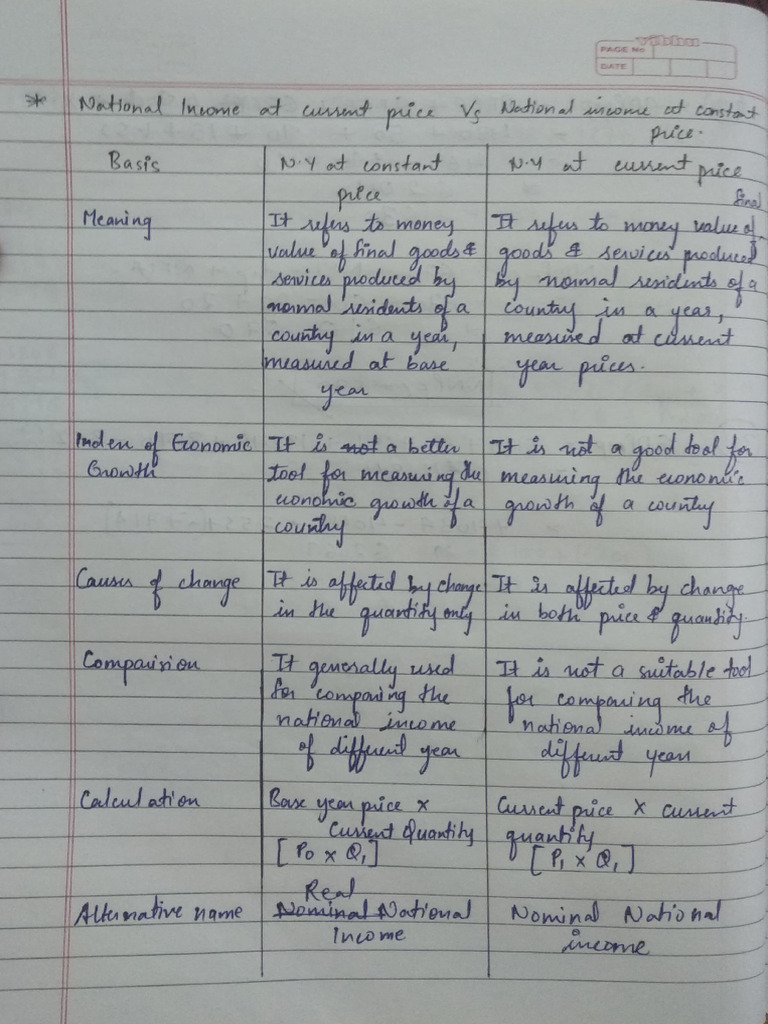 vibhu
PAGE No
DATE
* National Income at current price Vs National income at constant
price.
Basis
N.Y at constant
price
N.Y at current price
Meaning
It refers to money
value of final goods &
services produced by
normal residents of a
country in a year,
measured at base
year
final
It refers to money value of
goods & services produced
by normal residents of a
country in a year,
measured at current
year prices.
Index of Economic
Growth
It is not a better
tool for measuring the
economic growth of a
country
It is not a good tool for
measuring the economic
growth of a country
Causes of change
It is affected by change
in the quantity only
It is affected by change
in both price & quantity.
Compairsion
It generally used
for comparing the
national income
of different year
It is not a suitable tool
for comparing the
national income of
different years
Calculation
Base year price x
Current Quantity
[P0 x Q1]
Current price x current
quantity
[P1 x Q1]
Alternative name
Real
Nominal National
Income
Nominal National
income